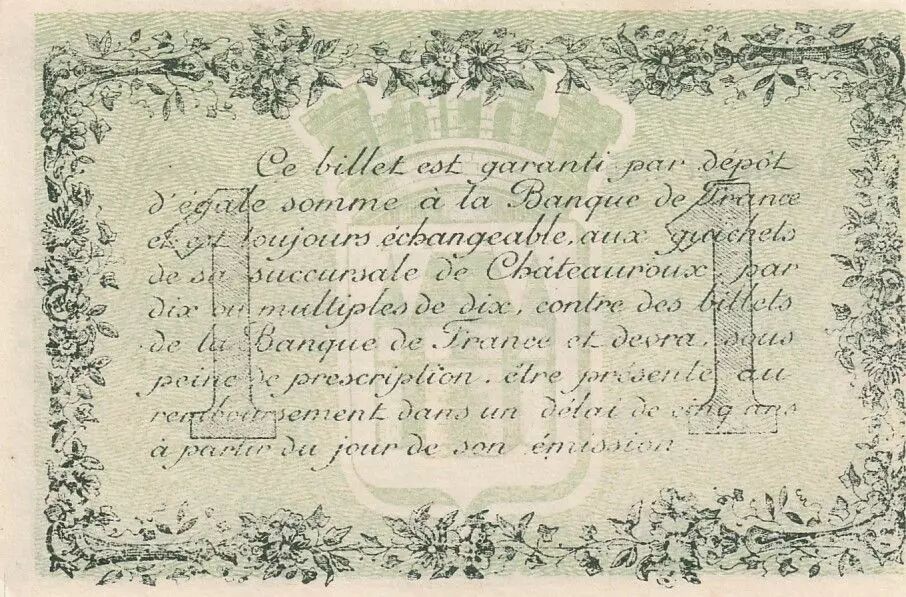 Ce billet est garanti par dépôt
d'égale somme à la Banque de France
et est toujours échangeable, aux guichets
de sa succursale de Châteauroux, par
dix ou multiples de dix, contre des billets
de la Banque de France et devra, sous
peine de prescription, être présenté au
remboursement dans un délai de cinq ans
à partir du jour de son émission
1 1